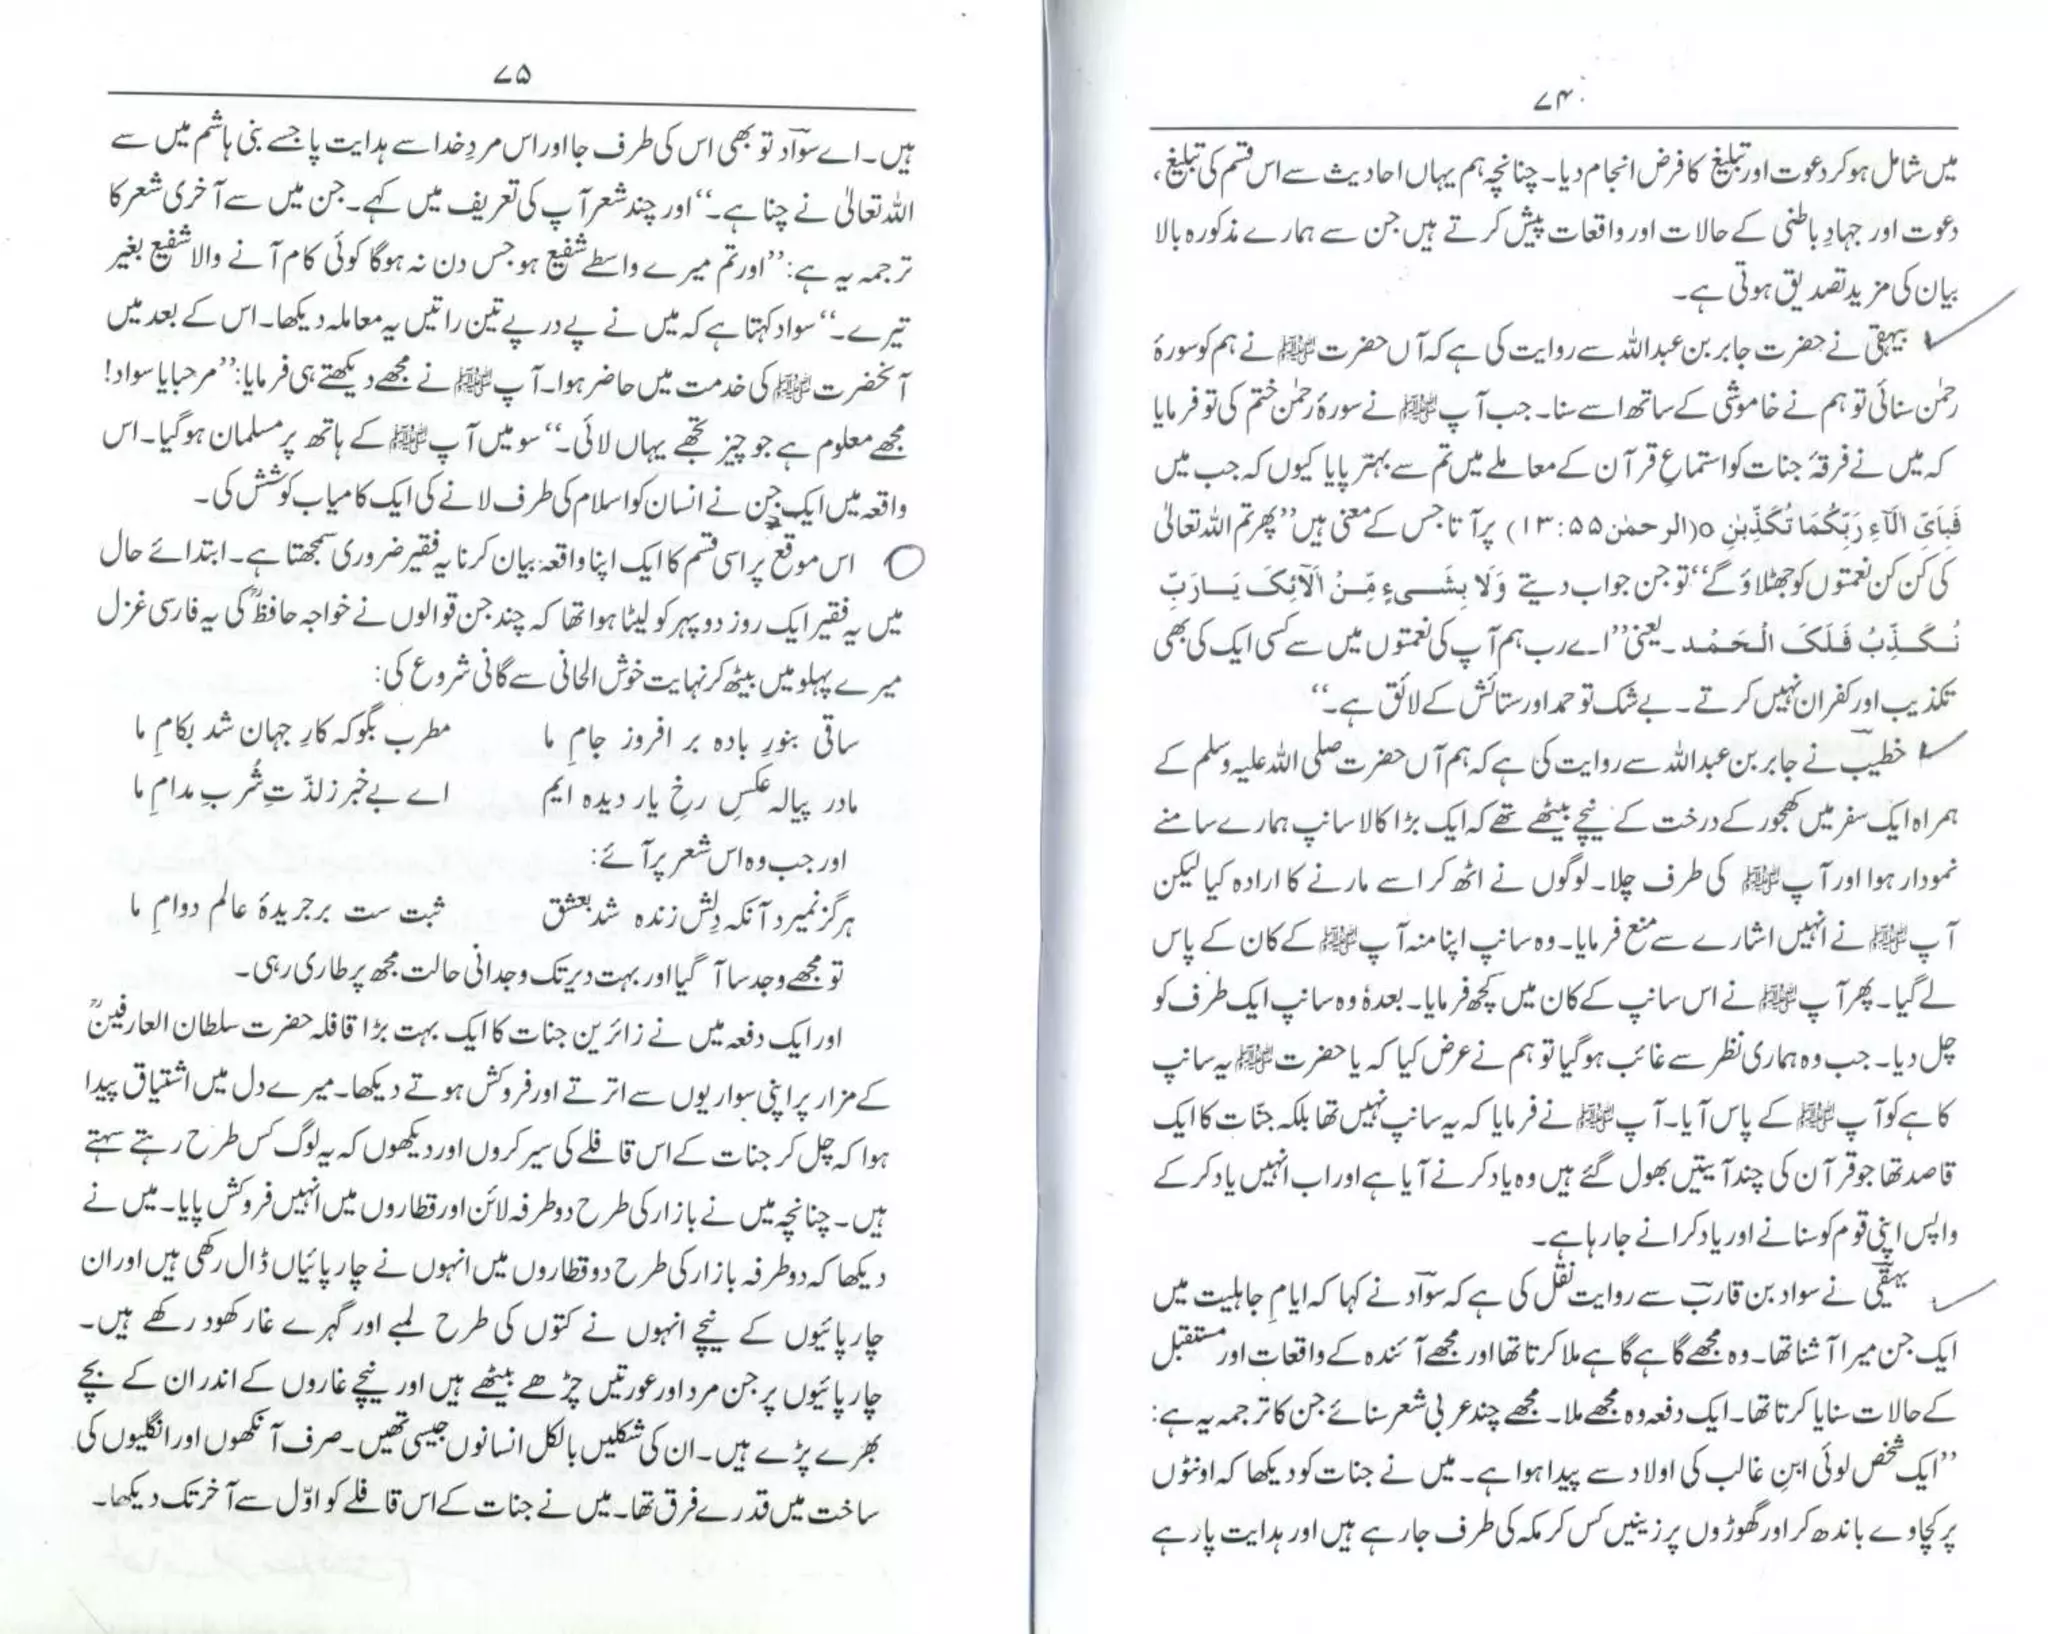 ۷۴
میں شامل ہو کر دعوت اور تبلیغ کا فرض انجام دیا۔ چنانچہ ہم یہاں احادیث سے اس قسم کی تبلیغ،
دعوت اور جہادِ باطنی کے حالات اور واقعات پیش کرتے ہیں جن سے ہمارے مذکورہ بالا
بیان کی مزید تصدیق ہوتی ہے۔
بیہقی نے حضرت جابر بن عبداللہ سے روایت کی ہے کہ آں حضرت ﷺ نے ہم کو سورۂ
رحمٰن سنائی تو ہم نے خاموشی کے ساتھ اسے سنا۔ جب آپ ﷺ نے سورۂ رحمٰن ختم کی تو فرمایا
کہ میں نے فرقۂ جنات کو استماعِ قرآن کے معاملے میں تم سے بہتر پایا کیوں کہ جب میں
فَبِاَیِّ اٰلَآءِ رَبِّکُمَا تُکَذِّبٰنِ o (الرحمٰن ۵۵:۱۳) پر آتا جس کے معنی ہیں ’’پھر تم اللہ تعالیٰ
کی کن کن نعمتوں کو جھٹلاؤ گے‘‘ تو جن جواب دیتے وَلَا بِشَیْءٍ مِّنْ اٰلَآئِکَ یَارَبِّ
نُکَذِّبُ فَلَکَ الْحَمْد۔ یعنی ’’اے رب ہم آپ کی نعمتوں میں سے کسی ایک کی بھی
تکذیب اور کفران نہیں کرتے۔ بے شک تو حمد اور ستائش کے لائق ہے۔‘‘
خطیبؒ نے جابر بن عبداللہ سے روایت کی ہے کہ ہم آں حضرت صلی اللہ علیہ وسلم کے
ہمراہ ایک سفر میں کھجور کے درخت کے نیچے بیٹھے تھے کہ ایک بڑا کالا سانپ ہمارے سامنے
نمودار ہوا اور آپ ﷺ کی طرف چلا۔ لوگوں نے اٹھ کر اسے مارنے کا ارادہ کیا لیکن
آپ ﷺ نے انہیں اشارے سے منع فرمایا۔ وہ سانپ اپنا منہ آپ ﷺ کے کان کے پاس
لے گیا۔ پھر آپ ﷺ نے اس سانپ کے کان میں کچھ فرمایا۔ بعدہٗ وہ سانپ ایک طرف کو
چل دیا۔ جب وہ ہماری نظر سے غائب ہو گیا تو ہم نے عرض کیا کہ یا حضرت ﷺ یہ سانپ
کاہے کو آپ ﷺ کے پاس آیا۔ آپ ﷺ نے فرمایا کہ یہ سانپ نہیں تھا بلکہ جنّات کا ایک
قاصد تھا جو قرآن کی چند آیتیں بھول گئے ہیں وہ یاد کرنے آیا ہے اور اب انہیں یاد کر کے
واپس اپنی قوم کو سنانے اور یاد کرانے جا رہا ہے۔
بیہقیؒ نے سواد بن قاربؓ سے روایت نقل کی ہے کہ سوادؓ نے کہا کہ ایامِ جاہلیت میں
ایک جن میرا آشنا تھا۔ وہ مجھے گاہے گاہے ملا کرتا تھا اور مجھے آئندہ کے واقعات اور مستقبل
کے حالات سنایا کرتا تھا۔ ایک دفعہ وہ مجھے ملا۔ مجھے چند عربی شعر سنائے جن کا ترجمہ یہ ہے:
’’ایک شخص لوئی ابنِ غالب کی اولاد سے پیدا ہوا ہے۔ میں نے جنات کو دیکھا کہ اونٹوں
پر کچاوے باندھ کر اور گھوڑوں پر زینیں کس کر مکہ کی طرف جا رہے ہیں اور ہدایت پا رہے
۷۵
ہیں۔ اے سوادؓ تو بھی اس کی طرف جا اور اس مردِ خدا سے ہدایت پا جسے بنی ہاشم میں سے
اللہ تعالیٰ نے چنا ہے۔‘‘ اور چند شعر آپ کی تعریف میں کہے۔ جن میں سے آخری شعر کا
ترجمہ یہ ہے: ’’اور تم میرے واسطے شفیع ہو جس دن نہ ہوگا کوئی کام آنے والا شفیع بغیر
تیرے۔‘‘ سواد کہتا ہے کہ میں نے پے در پے تین راتیں یہ معاملہ دیکھا۔ اس کے بعد میں
آنحضرت ﷺ کی خدمت میں حاضر ہوا۔ آپ ﷺ نے مجھے دیکھتے ہی فرمایا: ’’مرحبا یا سواد!
مجھے معلوم ہے جو چیز تجھے یہاں لائی۔‘‘ سو میں آپ ﷺ کے ہاتھ پر مسلمان ہو گیا۔ اس
واقعہ میں ایک جن نے انسان کو اسلام کی طرف لانے کی ایک کامیاب کوشش کی۔
اس موقع پر اسی قسم کا ایک اپنا واقعہ بیان کرنا یہ فقیر ضروری سمجھتا ہے۔ ابتدائے حال
میں یہ فقیر ایک روز دوپہر کو لیٹا ہوا تھا کہ چند جن قوالوں نے خواجہ حافظؒ کی یہ فارسی غزل
میرے پہلو میں بیٹھ کر نہایت خوش الحانی سے گانی شروع کی:
ساقی بنورِ بادہ بر افروز جامِ ما مطرب بگو کہ کارِ جہان شد بکامِ ما
مادر پیالہ عکسِ رخِ یار دیدہ ایم اے بے خبر زلذّتِ شُربِ مدامِ ما
اور جب وہ اس شعر پر آئے:
ہرگز نمیرد آنکہ دِلش زندہ شد بعشق ثبت ست بر جریدۂ عالم دوامِ ما
تو مجھے وجد سا آ گیا اور بہت دیر تک وجدانی حالت مجھ پر طاری رہی۔
اور ایک دفعہ میں نے زائرین جنات کا ایک بہت بڑا قافلہ حضرت سلطان العارفینؒ
کے مزار پر اپنی سواریوں سے اترتے اور فروکش ہوتے دیکھا۔ میرے دل میں اشتیاق پیدا
ہوا کہ چل کر جنات کے اس قافلے کی سیر کروں اور دیکھوں کہ یہ لوگ کس طرح رہتے سہتے
ہیں۔ چنانچہ میں نے بازار کی طرح دو طرفہ لائن اور قطاروں میں انہیں فروکش پایا۔ میں نے
دیکھا کہ دو طرفہ بازار کی طرح دو قطاروں میں انہوں نے چارپائیاں ڈال رکھی ہیں اور ان
چارپائیوں کے نیچے انہوں نے کتوں کی طرح لمبے اور گہرے غار کھود رکھے ہیں۔
چارپائیوں پر جن مرد اور عورتیں چڑھے بیٹھے ہیں اور نیچے غاروں کے اندر ان کے بچے
بھرے پڑے ہیں۔ ان کی شکلیں بالکل انسانوں جیسی تھیں۔ صرف آنکھوں اور انگلیوں کی
ساخت میں قدرے فرق تھا۔ میں نے جنات کے اس قافلے کو اوّل سے آخر تک دیکھا۔